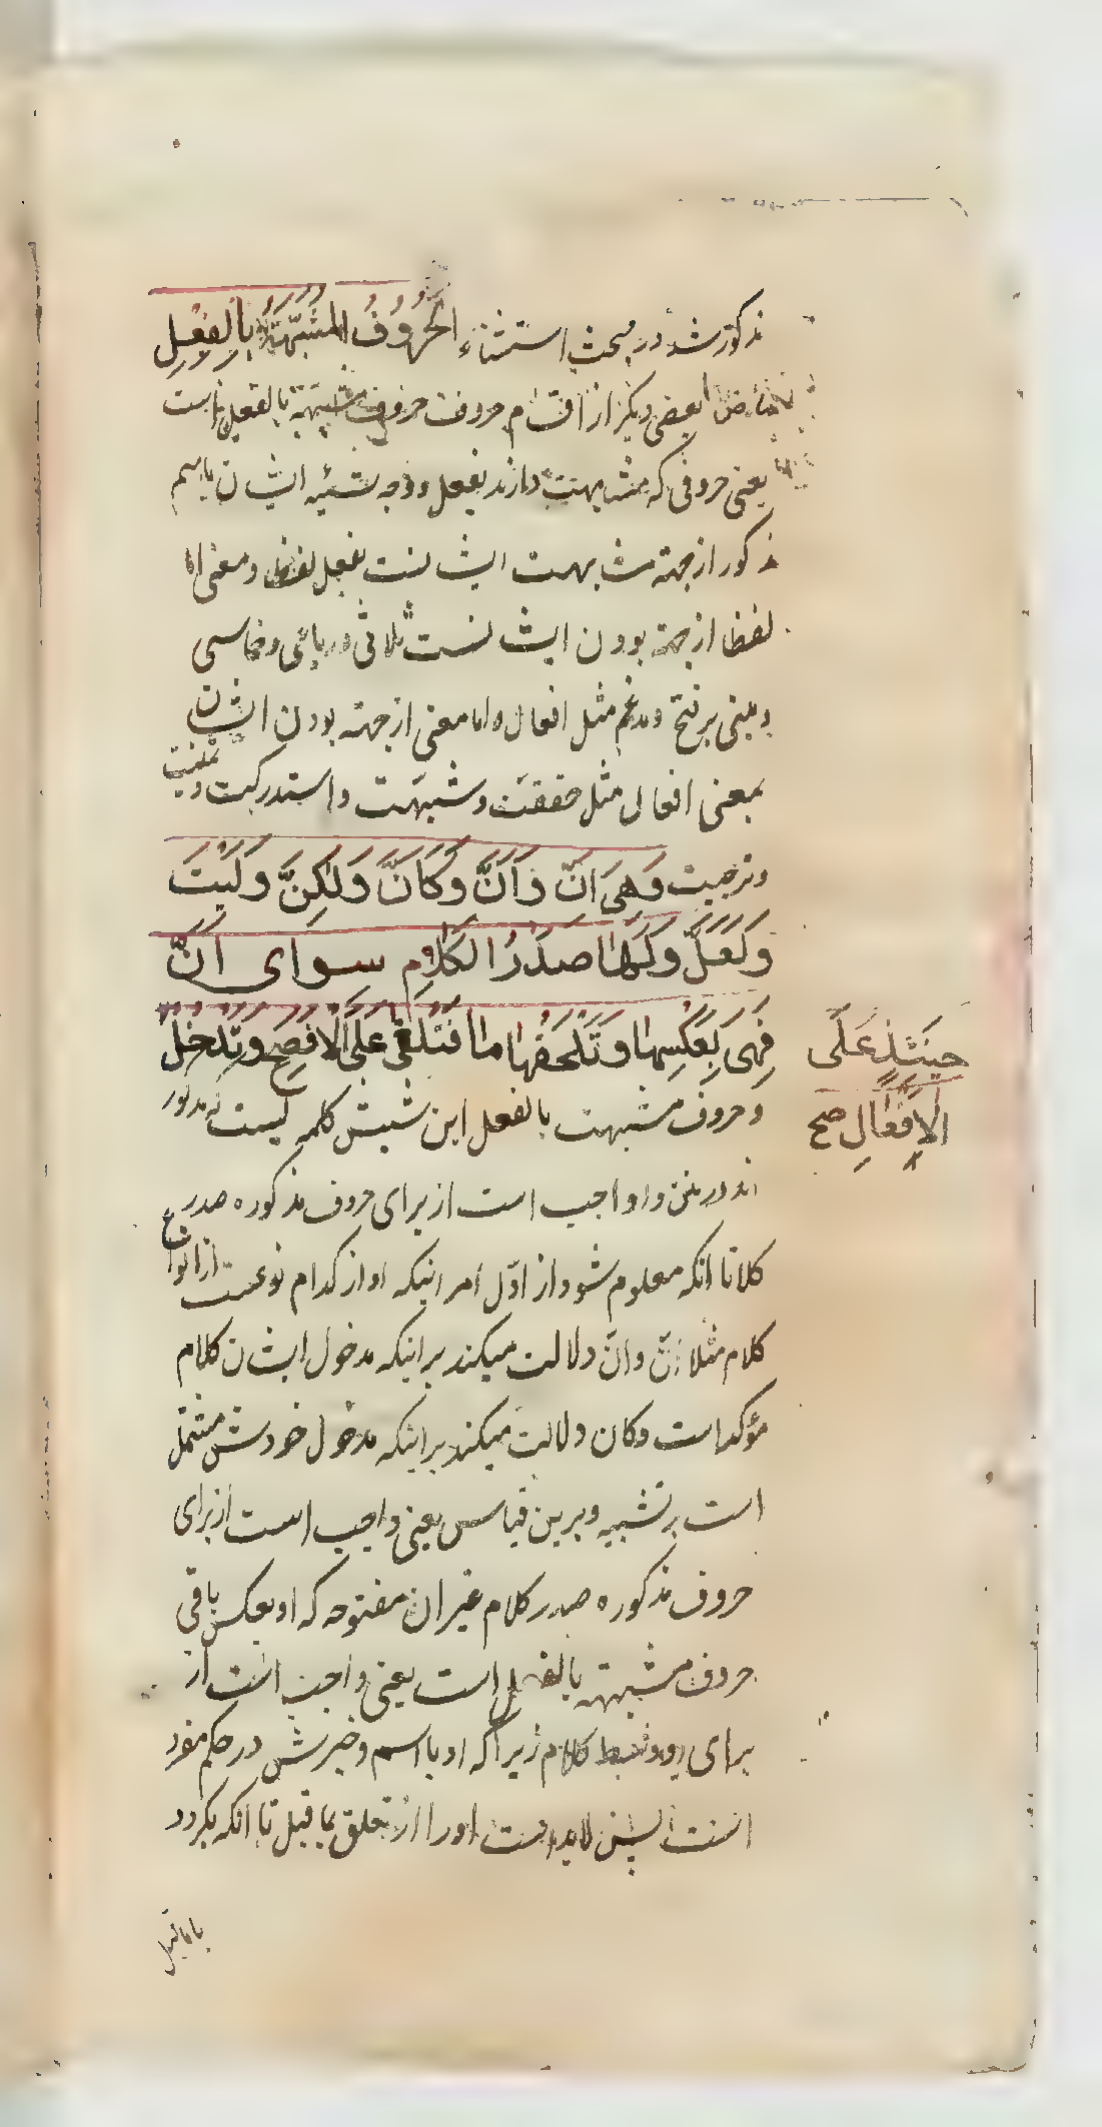 مذکور شد در مبحث استثناء اَلْحُرُوْفُ الْمُشَبَّهَةُ بِالْفِعْلِ
بعضی دیکر از اقسام حروف حروف مشبهة بالفعل است
یعنی حروفی که مشابهت دارند بفعل و وجه تسمیه ایشان باسم
مذکور از جهة مشابهت ایشانست بفعل لفظا و معنی اما
لفظا از جهة بودن ایشانست ثلاثی و رباعی و خماسی
و مبنی بر فتح و مدغم مثل افعال و اما معنی از جهة بودن ایشان
بمعنی افعال مثل حققت و شبهت و استدرکت و تمنیت
و ترجیت وَهِیَ اِنَّ وَاَنَّ وَکَاَنَّ وَلٰکِنَّ وَلَیْتَ
وَلَعَلَّ وَلَهَا صَدْرُ الْکَلَامِ سِوَای اَنَّ
فَهِیَ بِعَکْسِهَا وَتَلْحَقُهَا مَا فَتُلْغٰی عَلَی الْاَفْصَحِ وَتَدْخُلُ
حِیْنَئِذٍ عَلَی
الْاَفْعَالِ صح
و حروف مشبهت بالفعل این شیش کلمه ایست که مذکور
اند در متن و واجب است از برای حروف مذکوره صدر
کلام تا انکه معلوم شود از اوّل امر اینکه او از کدام نوعست از انواع
کلام مثلا اِنّ و اَنّ دلالت میکند بر اینکه مدخول ایشان کلام
مؤکد است و کان دلالت میکند بر اینکه مدخول خودش مشتمل
است بر تشبیه و برین قیاس یعنی واجب است از برای
حروف مذکوره صدر کلام غیر ان مفتوحه که او بعکس باقی
حروف مشبهه بالفعل است یعنی واجب است از
برای او وسط کلام زیراکه او با اسم و خبرش در حکم مفرد
است پس لابد است او را از تعلق بما قبل تا انکه بکردد
با ماقبل